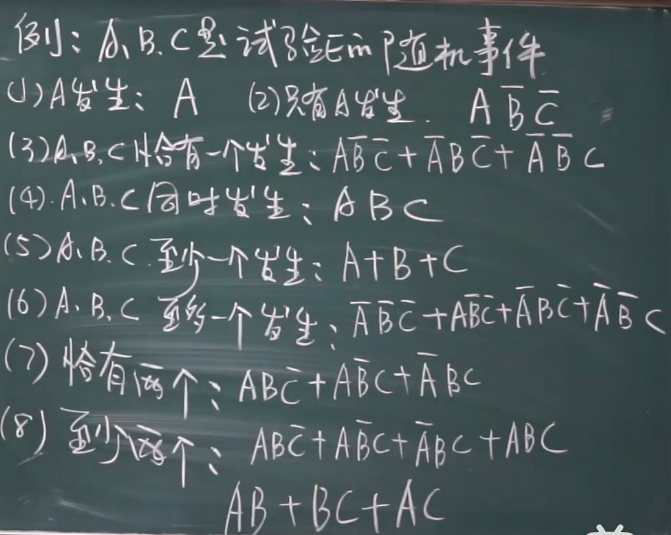 例：A、B、C是试验E的随机事件
(1) A发生：A (2)只有A发生. AB̅C̅
(3) A、B、C恰有一个发生：AB̅C̅+A̅BC̅+A̅B̅C
(4). A、B、C同时发生：ABC
(5) A、B、C.至少一个发生：A+B+C
(6) A、B、C 至多一个发生：A̅B̅C̅+AB̅C̅+A̅BC̅+A̅B̅C
(7) 恰有两个：ABC̅+AB̅C+A̅BC
(8) 至少两个：ABC̅+AB̅C+A̅BC+ABC
AB+BC+AC